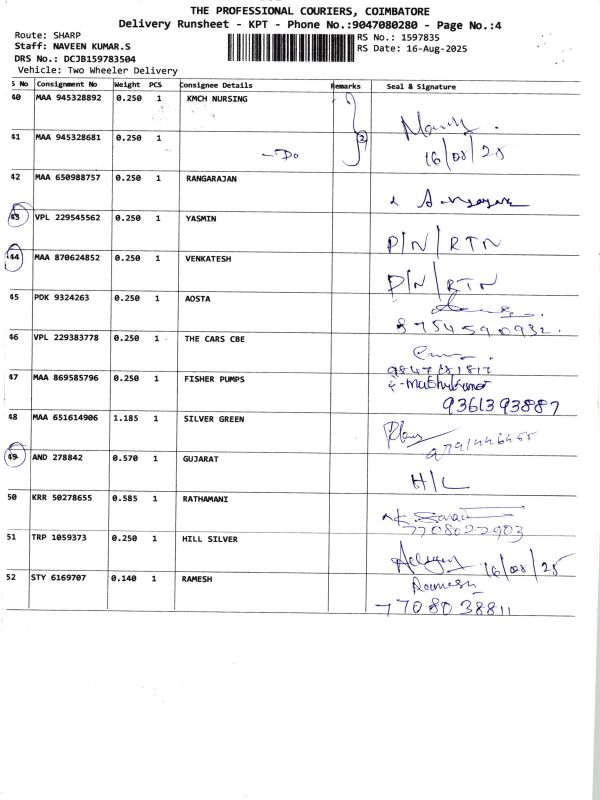 THE PROFESSIONAL COURIERS, COIMBATORE
Delivery Runsheet - KPT - Phone No.:9047080280 - Page No.:4
Route: SHARP
RS No.: 1597835
Staff: NAVEEN KUMAR.S
RS Date: 16-Aug-2025
DRS No.: DCJB159783504
Vehicle: Two Wheeler Delivery
S No Consignment No Weight PCS Consignee Details Remarks Seal & Signature
40 MAA 945328892 0.250 1 KMCH NURSING
41 MAA 945328681 0.250 1 -Do 2 16/08/25
42 MAA 650988757 0.250 1 RANGARAJAN
43 VPL 229545562 0.250 1 YASMIN P/N/RTN
44 MAA 870624852 0.250 1 VENKATESH P/N/RTN
45 PDK 9324263 0.250 1 AOSTA 8754590932.
46 VPL 229383778 0.250 1 THE CARS CBE
47 MAA 869585796 0.250 1 FISHER PUMPS 9361393887
48 MAA 651614906 1.185 1 SILVER GREEN
49 AND 278842 0.570 1 GUJARAT H/L
50 KRR 50278655 0.585 1 RATHAMANI 7708022903
51 TRP 1059373 0.250 1 HILL SILVER 16/08/25
52 STY 6169707 0.140 1 RAMESH Ramesh
7708038811